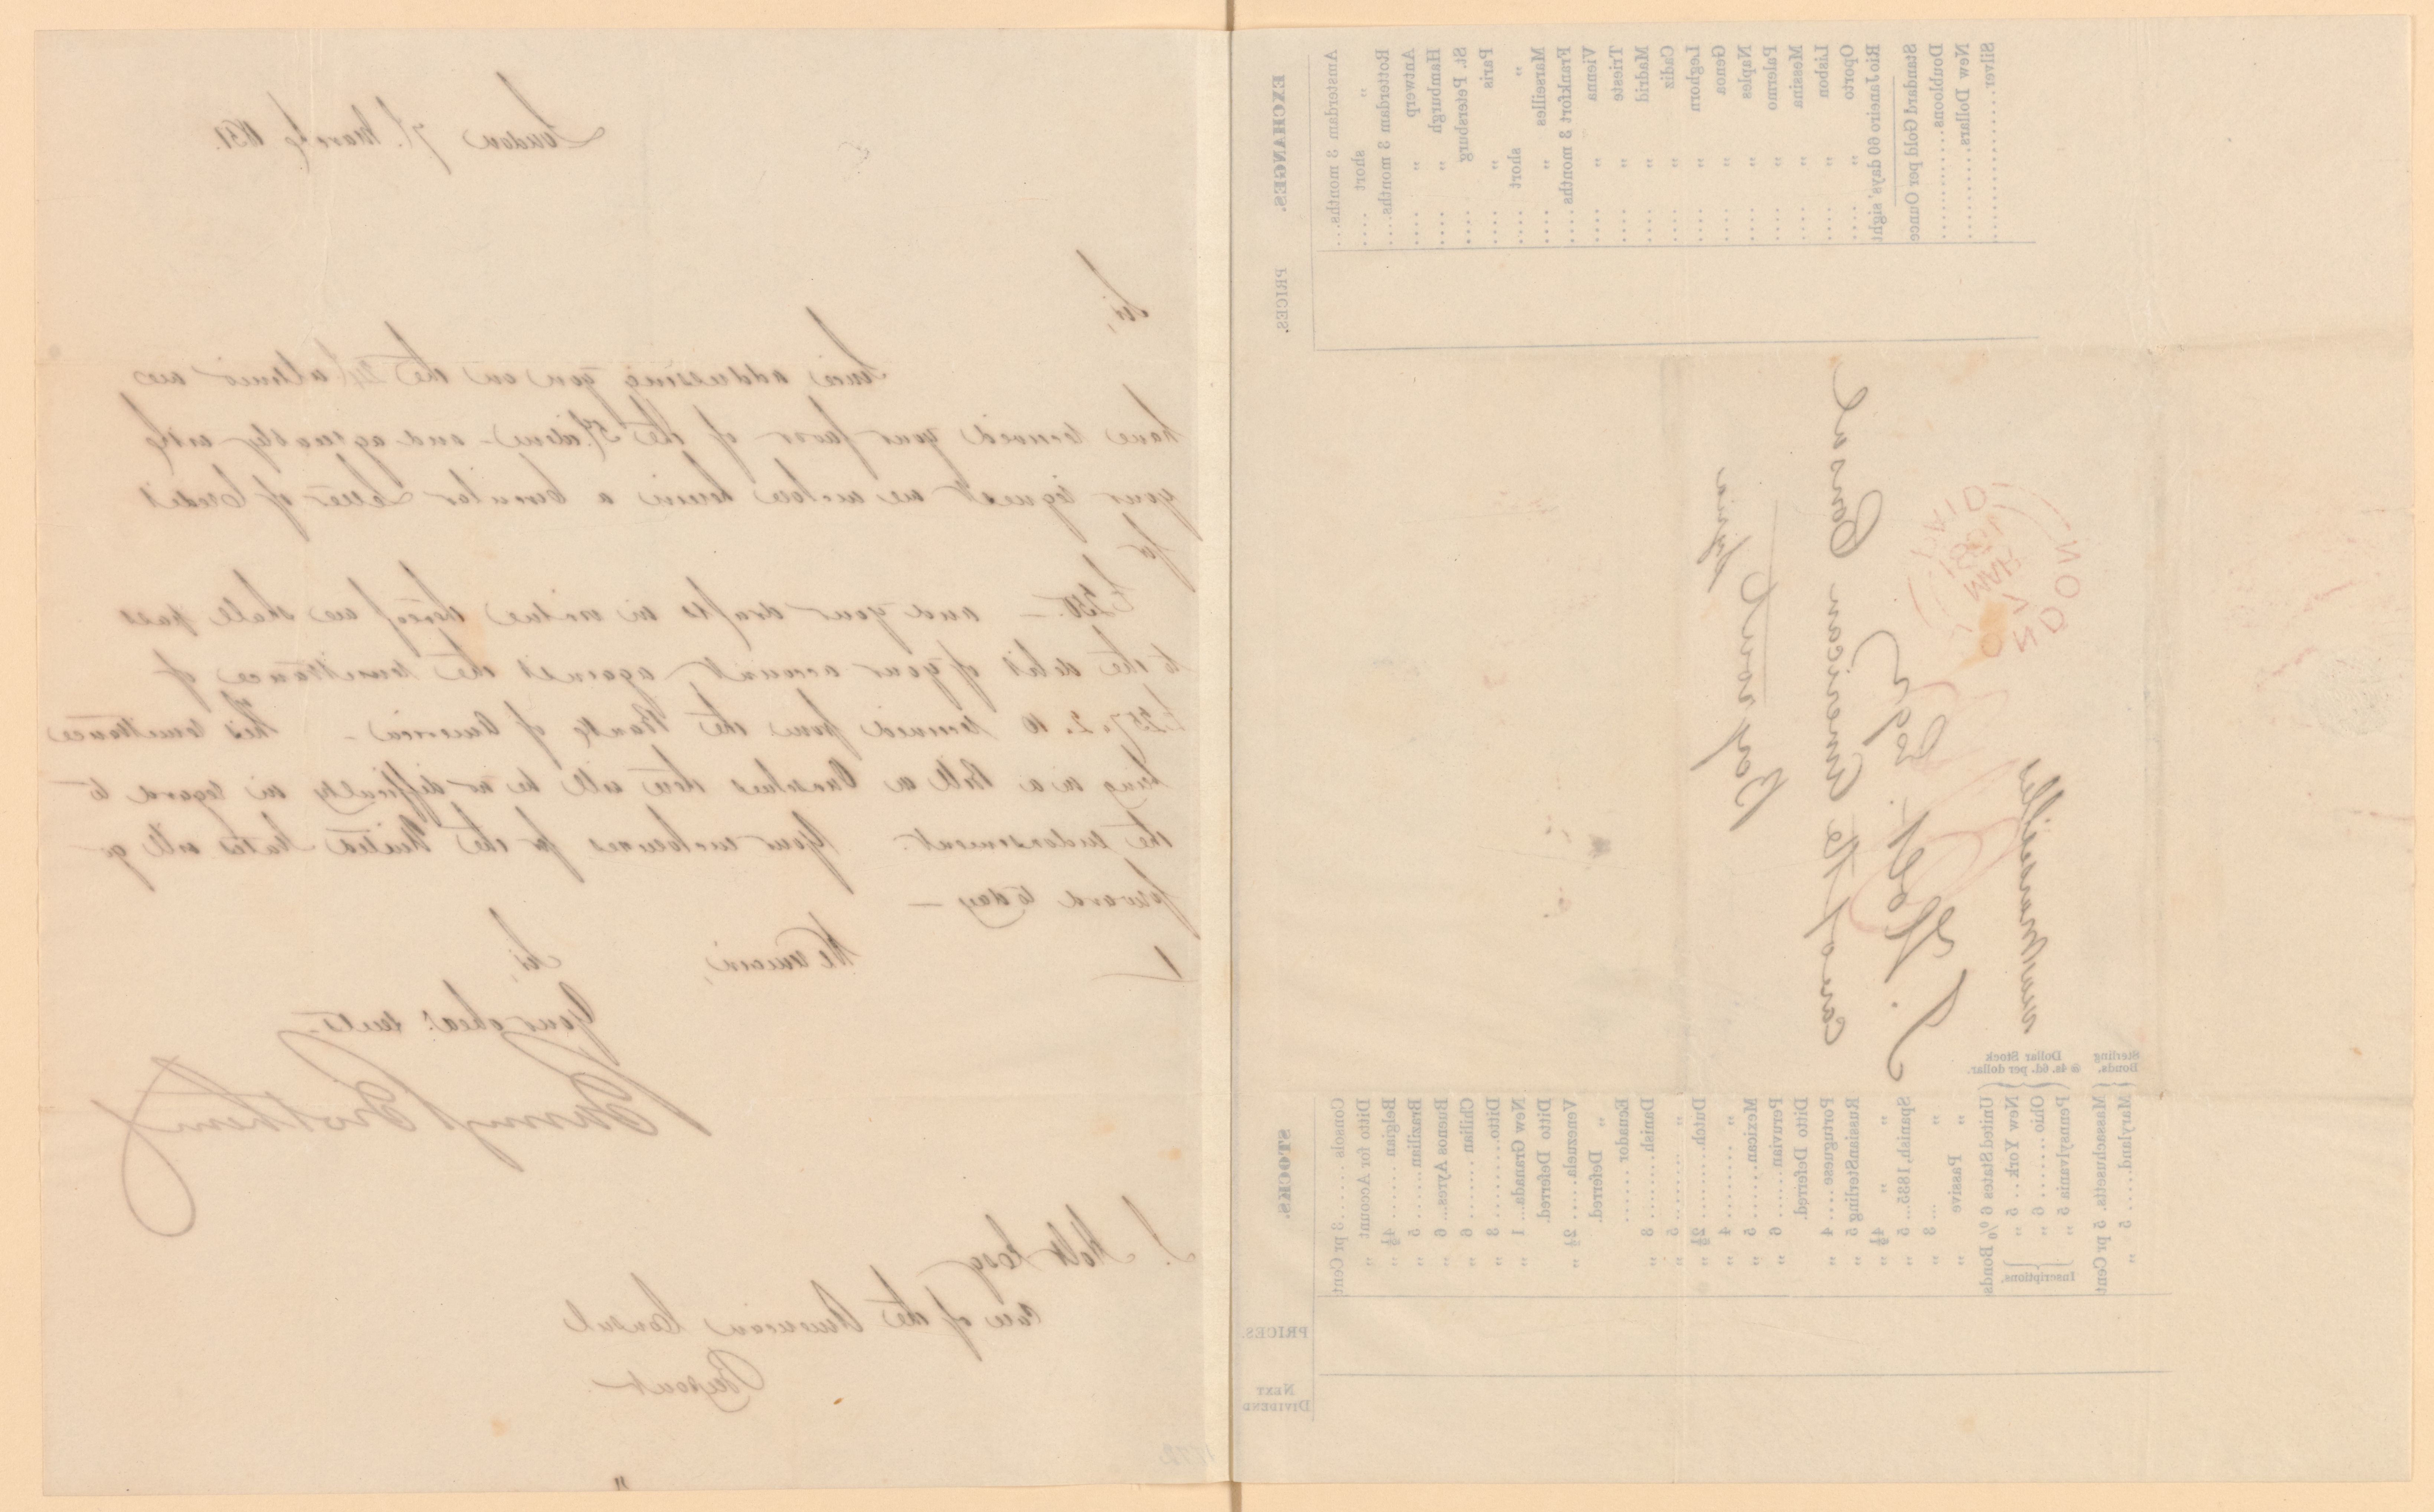 London 7th. March 1851.
Sir,
Since addressing you on the 24th ultimo we
have received your favor of the 5th idem - and agreeably with
your request we enclose herein a Circular Letter of Credit
for
£250. - and your drafts in virtue thereof we shall pass
to the debit of your account against the remittance of
£257. 2. 10 received from the Bank of America - This remittance
being in a Bill on Ourselves there will be no difficulty in regard to
the endorsement. Your enclosures for the United States will go
forward to day -
We remain,
Sir,
Your obedt. Servts.
Baring Brothers
J. Holt Esq
care of the American Consul
Beyrout
EXCHANGES.
PRICES.
Amsterdam 3 months...
„ short ....
Rotterdam 3 months....
Antwerp „ ....
Hamburgh „ ....
St. Petersburg ....
Paris „ ....
„ short ....
Marseilles „ ....
Frankfort 3 months....
Vienna „ ....
Trieste „ ....
Madrid „ ....
Cadiz „ ....
Leghorn „ ....
Genoa „ ....
Naples „ ....
Palermo „ ....
Messina „ ....
Lisbon „ ....
Oporto „ ....
Rio Janeiro 60 days' sight
Standard Gold per Ounce
Doubloons..............
New Dollars............
Silver..................
via Marseilles
J. Holt. Esq
care of the American Consul
Beyrout
Syria
PAID
7 MAR
1851
STOCKS.
PRICES.
NEXT DIVIDEND
Consols ........ 3 pr Cent
Ditto for Account „
Belgian ........ 4½ „
Brazilian ...... 5 „
Buenos Ayres... 6 „
Chilian ........ 6 „
Ditto.......... 3 „
New Granada... 1 „
Ditto Deferred.
Venezuela..... 2¼ „
„ Deferred.
Ecuador .......
Danish......... 3 „
„ ......... 5 „
Dutch.......... 2½ „
„ ......... 4 „
Mexican........ 5 „
Peruvian....... 6 „
Ditto Deferred.
Portuguese .... 4 „
Russian Sterling 5 „
„ „ 4½ „
Spanish, 1835... 5 „
„ ... 3 „
„ Passive „
United States 6 % Bonds
New York... 5 „
Ohio........ 6 „
Pennsylvania 5 „
Inscriptions.
Dollar Stock
@ 4s. 6d. per dollar.
Massachusetts. 5 pr Cent
Maryland..... 5 „
Sterling Bonds.